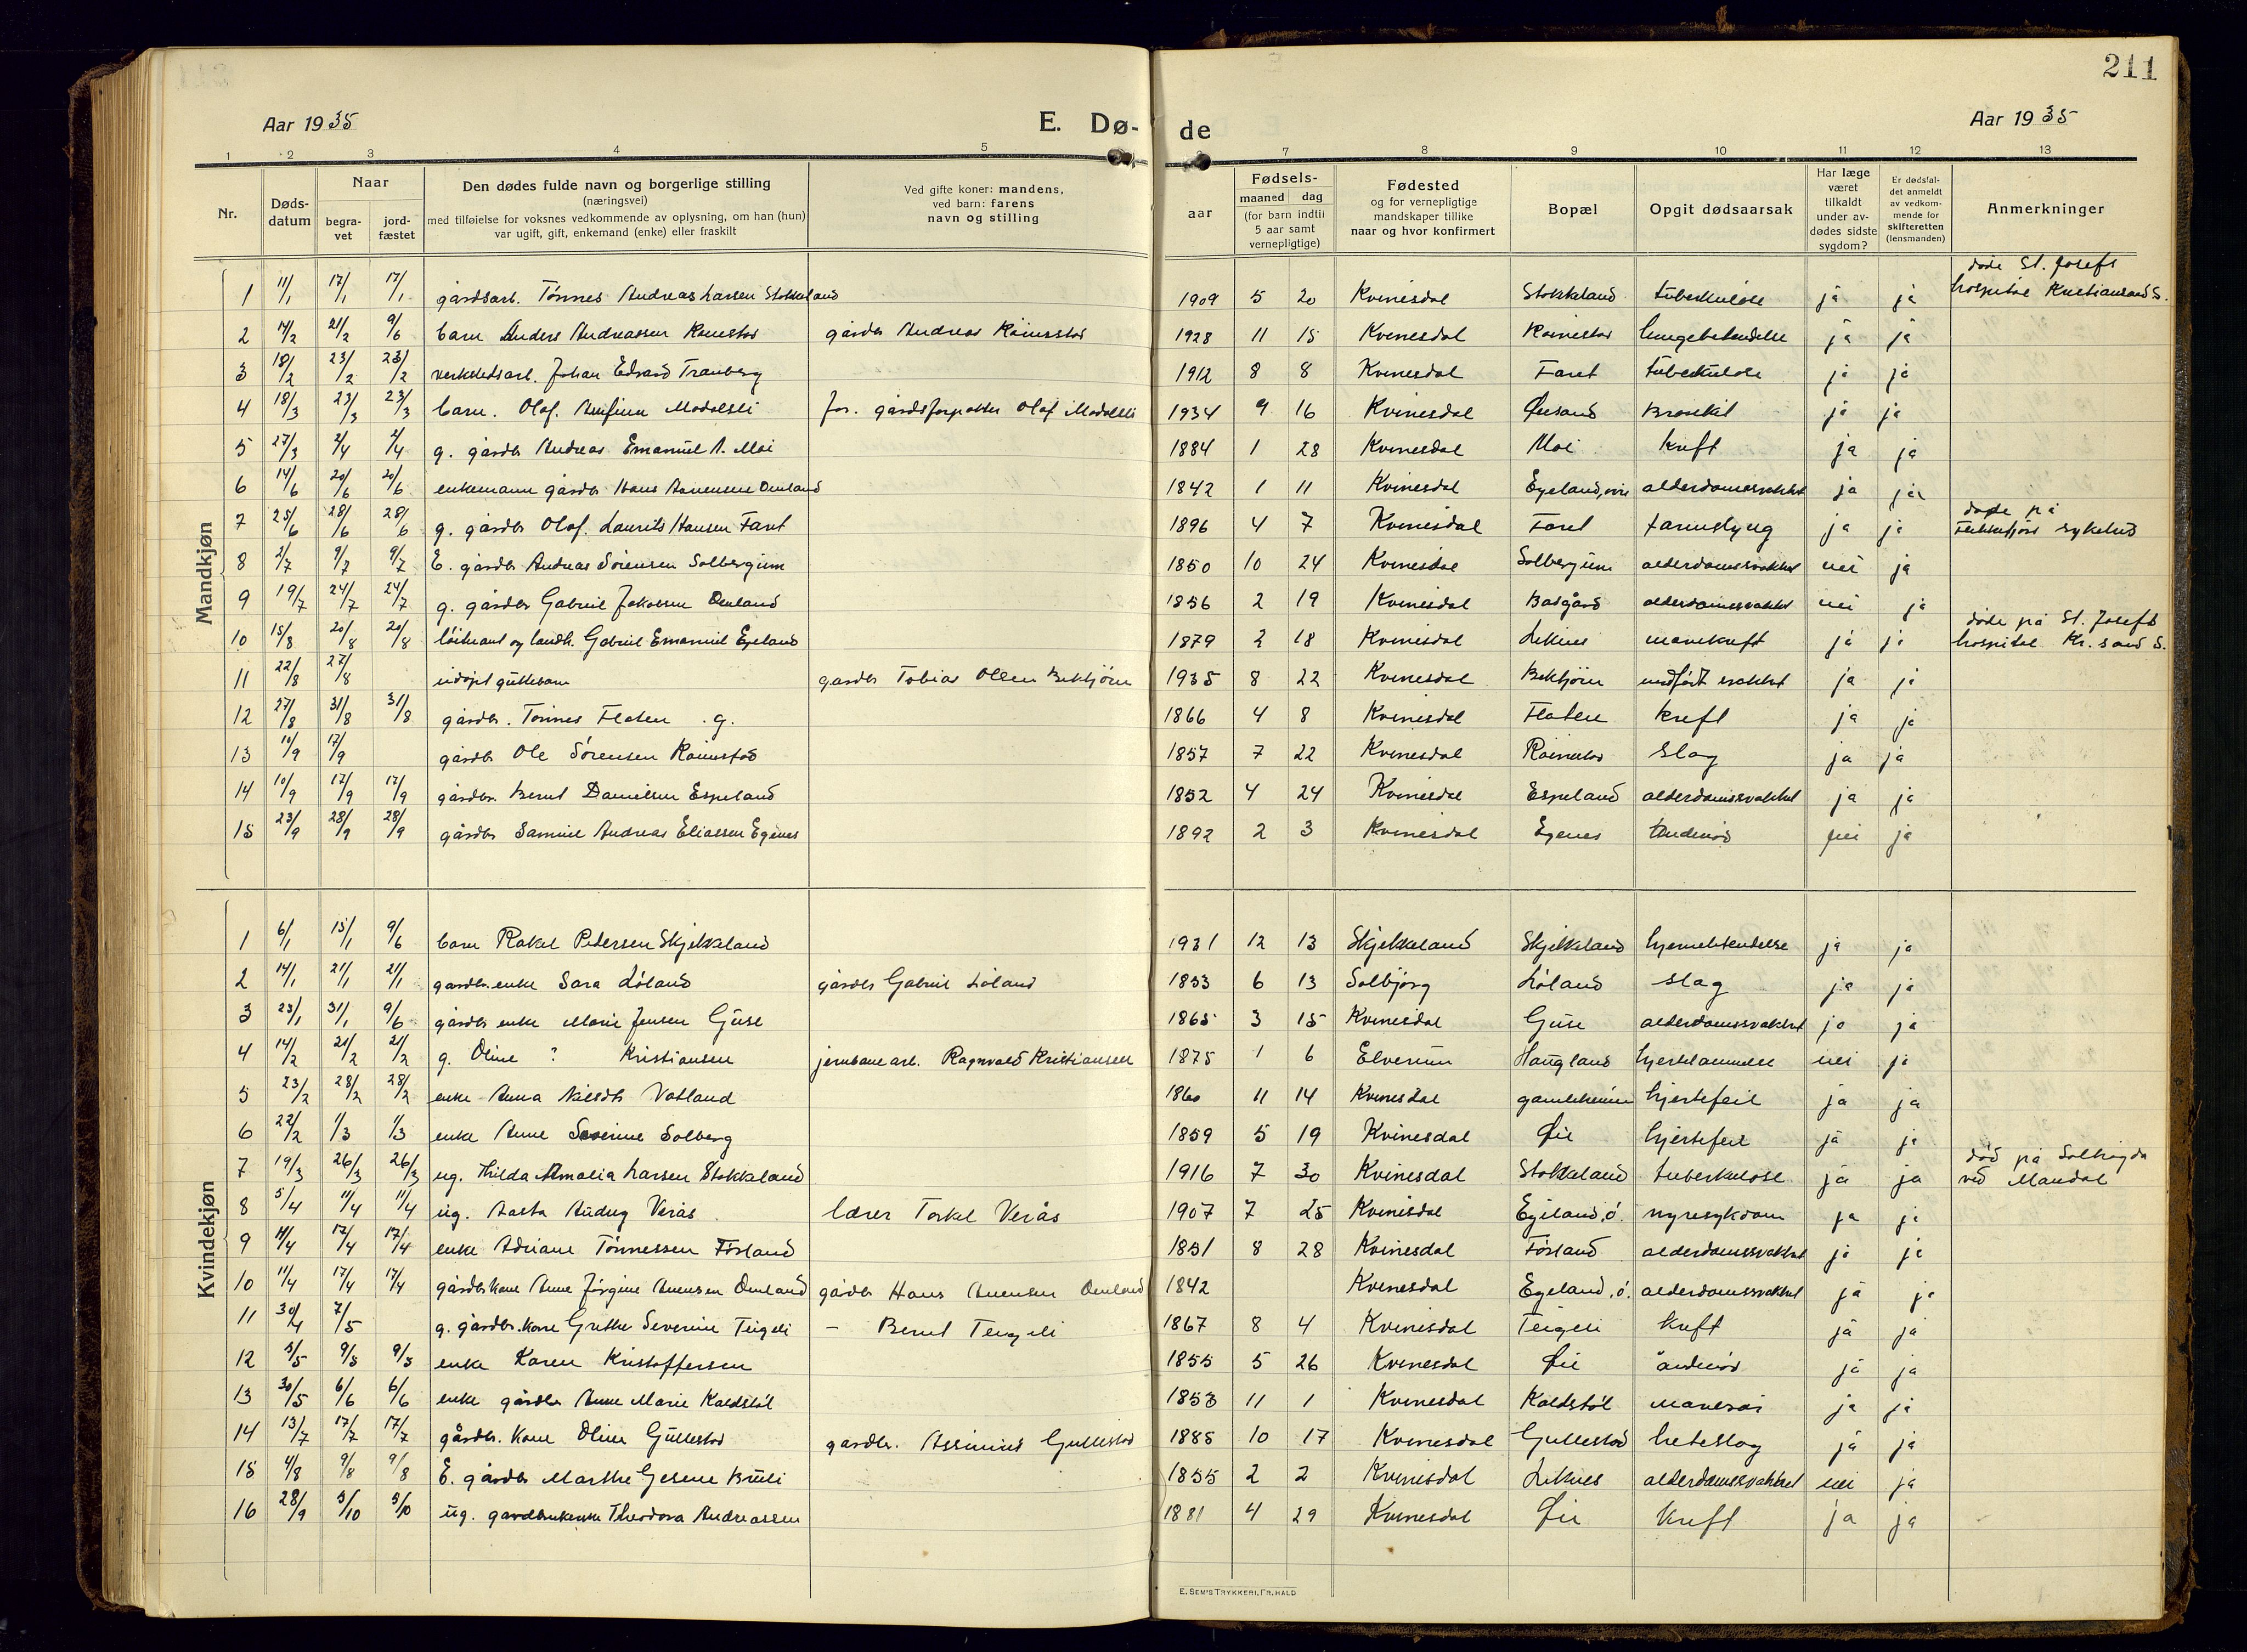 211
Aar 1935 E. Dø- de Aar 1935
1 2 3 4 5 7 8 9 10 11 12 13
Nr. Døds-datum Naar begra-vet jord-fæstet Den dødes fulde navn og borgerlige stilling (næringsvei) med tilføielse for voksnes vedkommende av oplysning, om han (hun) var ugift, gift, enkemand (enke) eller fraskilt Ved gifte koner: mandens, ved barn: farens navn og stilling aar Fødsels- maaned dag (for barn indtil 5 aar samt vernepligtige) Fødested og for vernepligtige mandskaper tillike naar og hvor konfirmert Bopæl Opgit dødsaarsak Har læge været tilkaldt under av-dødes sidste sygdom? Er dødsfal-det anmeldt av vedkom-mende for skifteretten (lensmanden) Anmerkninger
Mandkjøn
1 11/1 17/1 17/1 gårdsarb. Tønnes Andreas Larsen Stokkeland 1909 5 20 Kvinesdal Stokkeland tuberkulose ja ja døde St. Josefs hospital Kristiansand S.
2 14/2 21/2 9/6 barn Anders Andreassen gårdbr Andreas 1928 11 15 Kvinesdal lungebetendelse ja ja
3 18/2 23/2 23/2 verkstedsarb. Johan Edvard Tranberg 1912 8 8 Kvinesdal Faret tuberkulose ja ja
4 18/3 23/3 23/3 barn. Olaf. Arnfinn Modalsli for. gårdsforpakter Olaf Modalsli 1934 9 16 Kvinesdal Øiesand Bronkit ja ja
5 27/3 2/4 2/4 g. gårdbr Andreas Emanuel A. Moi 1884 1 28 Kvinesdal Moi kreft ja ja
6 14/6 20/6 20/6 enkemann gårdbr Hans Aanensen Omland 1842 1 11 Kvinesdal Egeland, alderdomssvakhet ja ja
7 25/6 28/6 28/6 g. gårdbr Olaf. Laurits Hansen Faret 1896 4 7 Kvinesdal Faret tarmslyng ja ja døde på Flekkefjord sykehus
8 2/7 9/7 9/7 E. gårdbr Andreas Sørensen Solbergium 1850 10 24 Kvinesdal Solbergium alderdomssvakhet nei ja
9 19/7 24/7 24/7 g. gårdbr Gabriel Jakobsen Omland 1856 2 19 Kvinesdal alderdomssvakhet nei ja
10 15/8 20/8 20/8 løitnant og landh. Gabriel Emanuel Egeland 1879 2 18 Kvinesdal Liknes mavekreft ja ja døde på St. Josefs hospital Kr.sand S.
11 22/8 27/8 udøpt guttebarn gardbr Tobias Olsen 1935 8 22 Kvinesdal medfødt svakhet ja ja
12 27/8 31/8 31/8 gårdbr. Tønnes Flaten . g. 1866 4 8 Kvinesdal Flaten kreft ja ja
13 10/9 17/9 gårdbr Ole Sørensen 1857 7 22 Kvinesdal slag ja ja
14 10/9 17/9 17/9 gårdbr. Bernt Danielsen Espeland 1852 4 24 Kvinesdal Espeland alderdomssvakhet ja ja
15 23/9 28/9 28/9 gårdbr Samuel Andreas Eliassen Egenes 1892 2 3 Kvinesdal Egenes nei ja
Kvindekjøn
1 6/1 15/1 9/6 barn Rakel Pedersen Skjekkeland 1931 12 13 Skjekkeland Skjekkeland hjernebetendelse ja ja
2 14/1 21/1 21/1 gardbr. enke Sara Løland gårdbr Gabriel Løland 1853 6 13 Solbjørg Løland slag ja ja
3 23/1 31/1 9/6 gårdbr enke Marie Jensen Guse 1865 3 15 Kvinesdal Guse alderdomssvakhet ja ja
4 14/2 21/2 21/2 g. Oline ? Kristiansen jernbanearb. Ragnvald Kristiansen 1875 1 6 Elverum Haugland hjertelammelse nei ja
5 23/2 28/2 28/2 enke Anna Nilsdtr Vatland 1860 11 14 Kvinesdal gamleheimen hjertefeil ja ja
6 22/2 1/3 1/3 enke Anne Severine Solberg 1859 5 19 Kvinesdal Øie hjertefeil ja ja
7 19/3 26/3 26/3 ug. Hilda Amalia Larsen Stokkeland 1916 7 30 Kvinesdal Stokkeland tuberkulose ja ja død på Solhøgda ved Mandal
8 5/4 11/4 11/4 ug. Aasta Audny Verås lærer Torkel Verås 1907 7 25 Kvinesdal Egeland, ø. nyresykdom ja ja
9 11/4 17/4 17/4 enke Adriane Tønnessen Førland 1851 8 28 Kvinesdal Førland alderdomssvakhet ja ja
10 11/4 17/4 17/4 gårdbr kone Anne Jørgine Anensen Omland gårdbr Hans Anensen Omland 1842 Kvinesdal Egeland, ø. alderdomssvakhet ja ja
11 30/4 7/5 g. gårdbr. kone Grethe Severine Teigeli – Bernt Teigeli 1867 8 4 Kvinesdal Teigeli kreft ja ja
12 3/5 9/5 9/5 enke Karen Kristoffersen 1855 5 26 Kvinesdal Øie åndenød ja ja
13 30/5 6/6 6/6 enke gårdbr Anne Marie Kaldstøl 1853 11 1 Kvinesdal Kaldstøl mavesår ja ja
14 13/7 17/7 17/7 gårdbr. kone Oline Gullestad gardbr. Assinius Gullestad 1885 10 17 Kvinesdal Gullestad heteslag ja ja
15 4/8 9/8 9/8 E. gårdbr Marthe Gesene Buli 1855 2 2 Kvinesdal Liknes alderdomssvakhet nei ja
16 28/9 5/10 5/10 ug. gardbrukerske Theodora Andreassen 1881 4 29 Kvinesdal Øie kreft ja ja
E. SEM'S TRYKKERI, FR.HALD